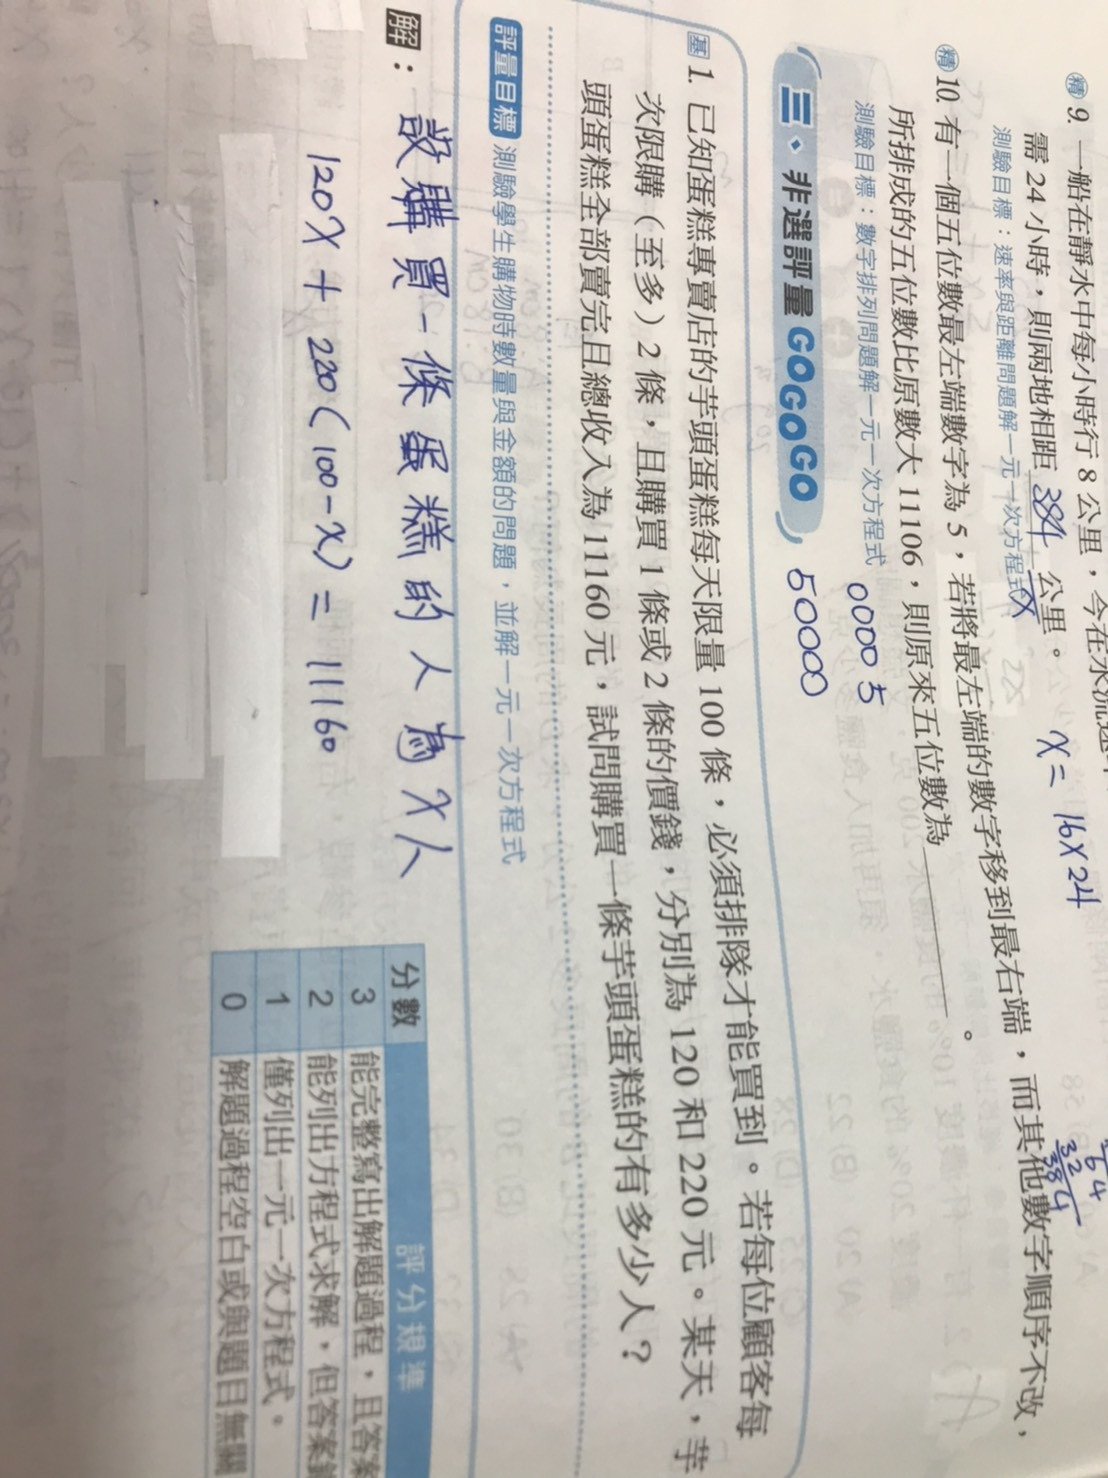 精 9. 一船在靜水中每小時行 8 公里，今在水流速
需 24 小時，則兩地相距 384 公里。 x = 16×24
測驗目標：速率與距離問題解一元一次方程式
64
32
384
精 10. 有一個五位數最左端數字為 5，若將最左端的數字移到最右端，而其他數字順序不改，
所排成的五位數比原數大 11106，則原來五位數為＿＿＿＿。
測驗目標：數字排列問題解一元一次方程式
00005
50000
三、非選評量 GOGOGO
基 1. 已知蛋糕專賣店的芋頭蛋糕每天限量 100 條，必須排隊才能買到。若每位顧客每
次限購（至多）2 條，且購買 1 條或 2 條的價錢，分別為 120 和 220 元。某天，芋
頭蛋糕全部賣完且總收入為 11160 元，試問購買一條芋頭蛋糕的有多少人？
評量目標 測驗學生購物時數量與金額的問題，並解一元一次方程式
解：設購買一條蛋糕的人為 x 人
120x + 220(100-x) = 11160
分數 評分規準
3 能完整寫出解題過程，且答案
2 能列出方程式求解，但答案錯
1 僅列出一元一次方程式。
0 解題過程空白或與題目無關